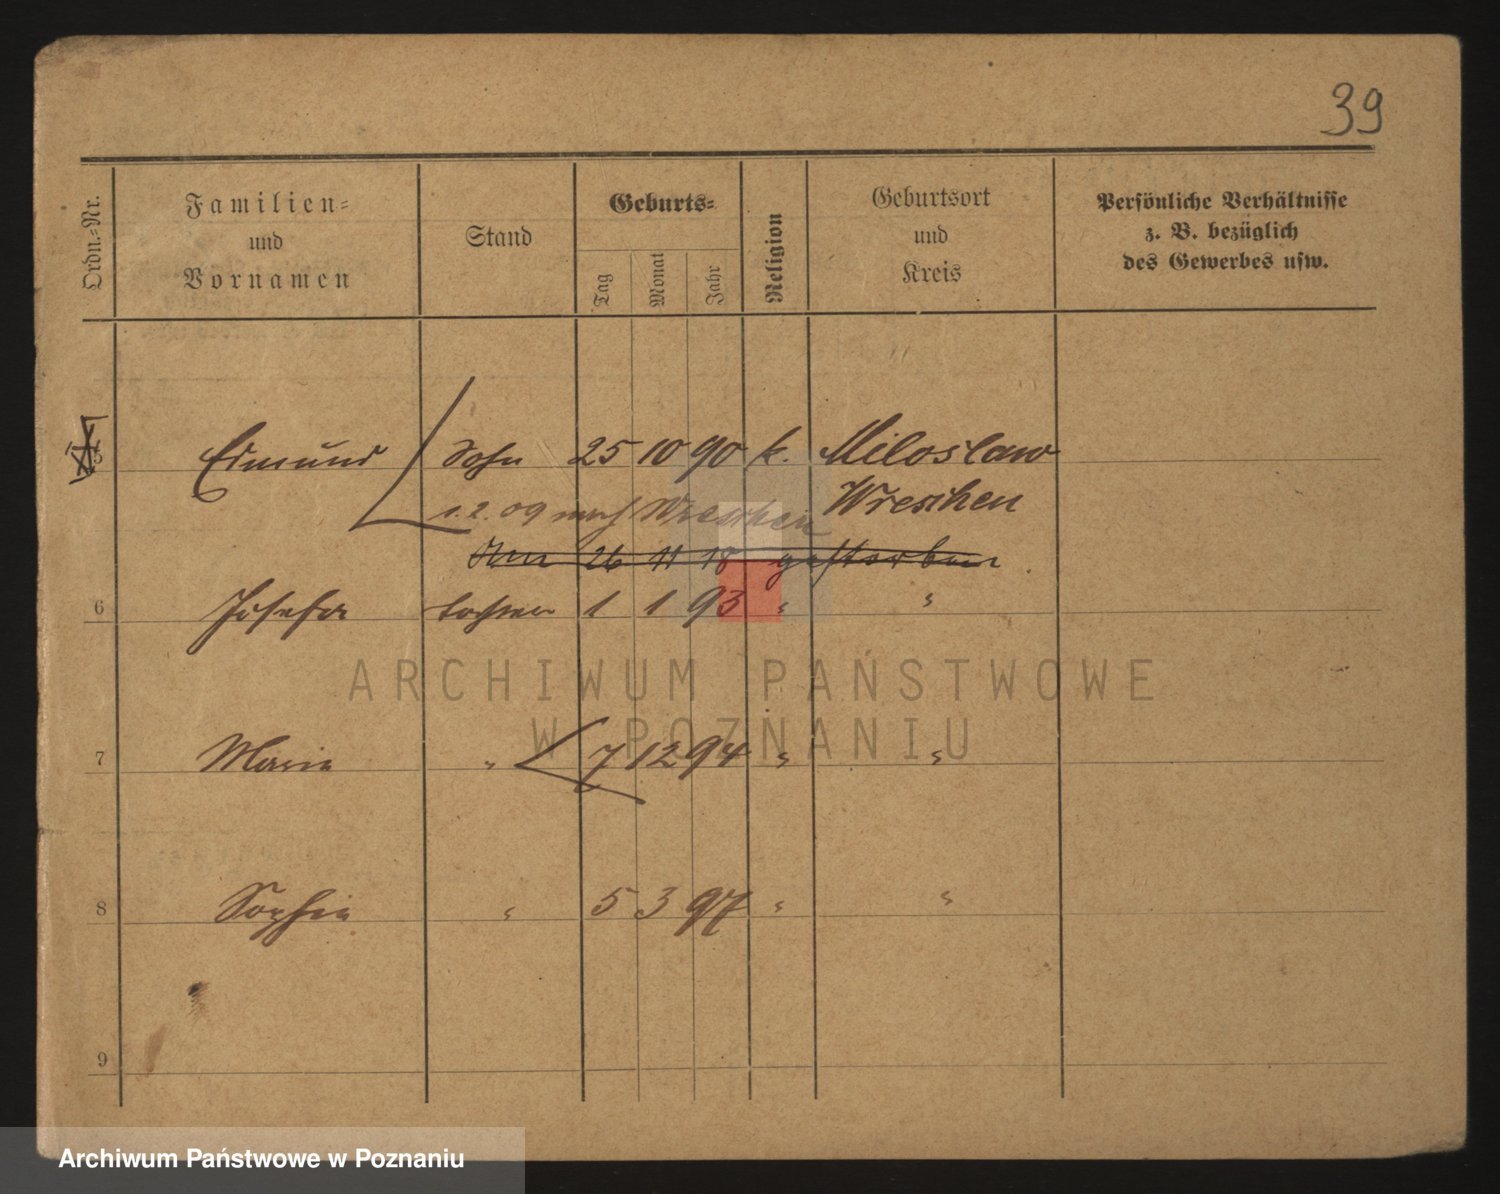 39
Ordn.-Nr. Familien- und Vornamen Stand Geburts- Tag Monat Jahr Religion Geburtsort und Kreis Persönliche Verhältnisse z. B. bezüglich des Gewerbes usw.
5 Edmund Sohn 25 10 90 k. Miloslaw
1.2.09 nach Wreschen Wreschen
Am 26 11 18 gestorben
6 Josefa Tochter 1 1 93 " "
7 Marie " 7 12 94 " "
8 Sophie " 5 3 97 " "
9
ARCHIWUM PAŃSTWOWE
W POZNANIU
Archiwum Państwowe w Poznaniu